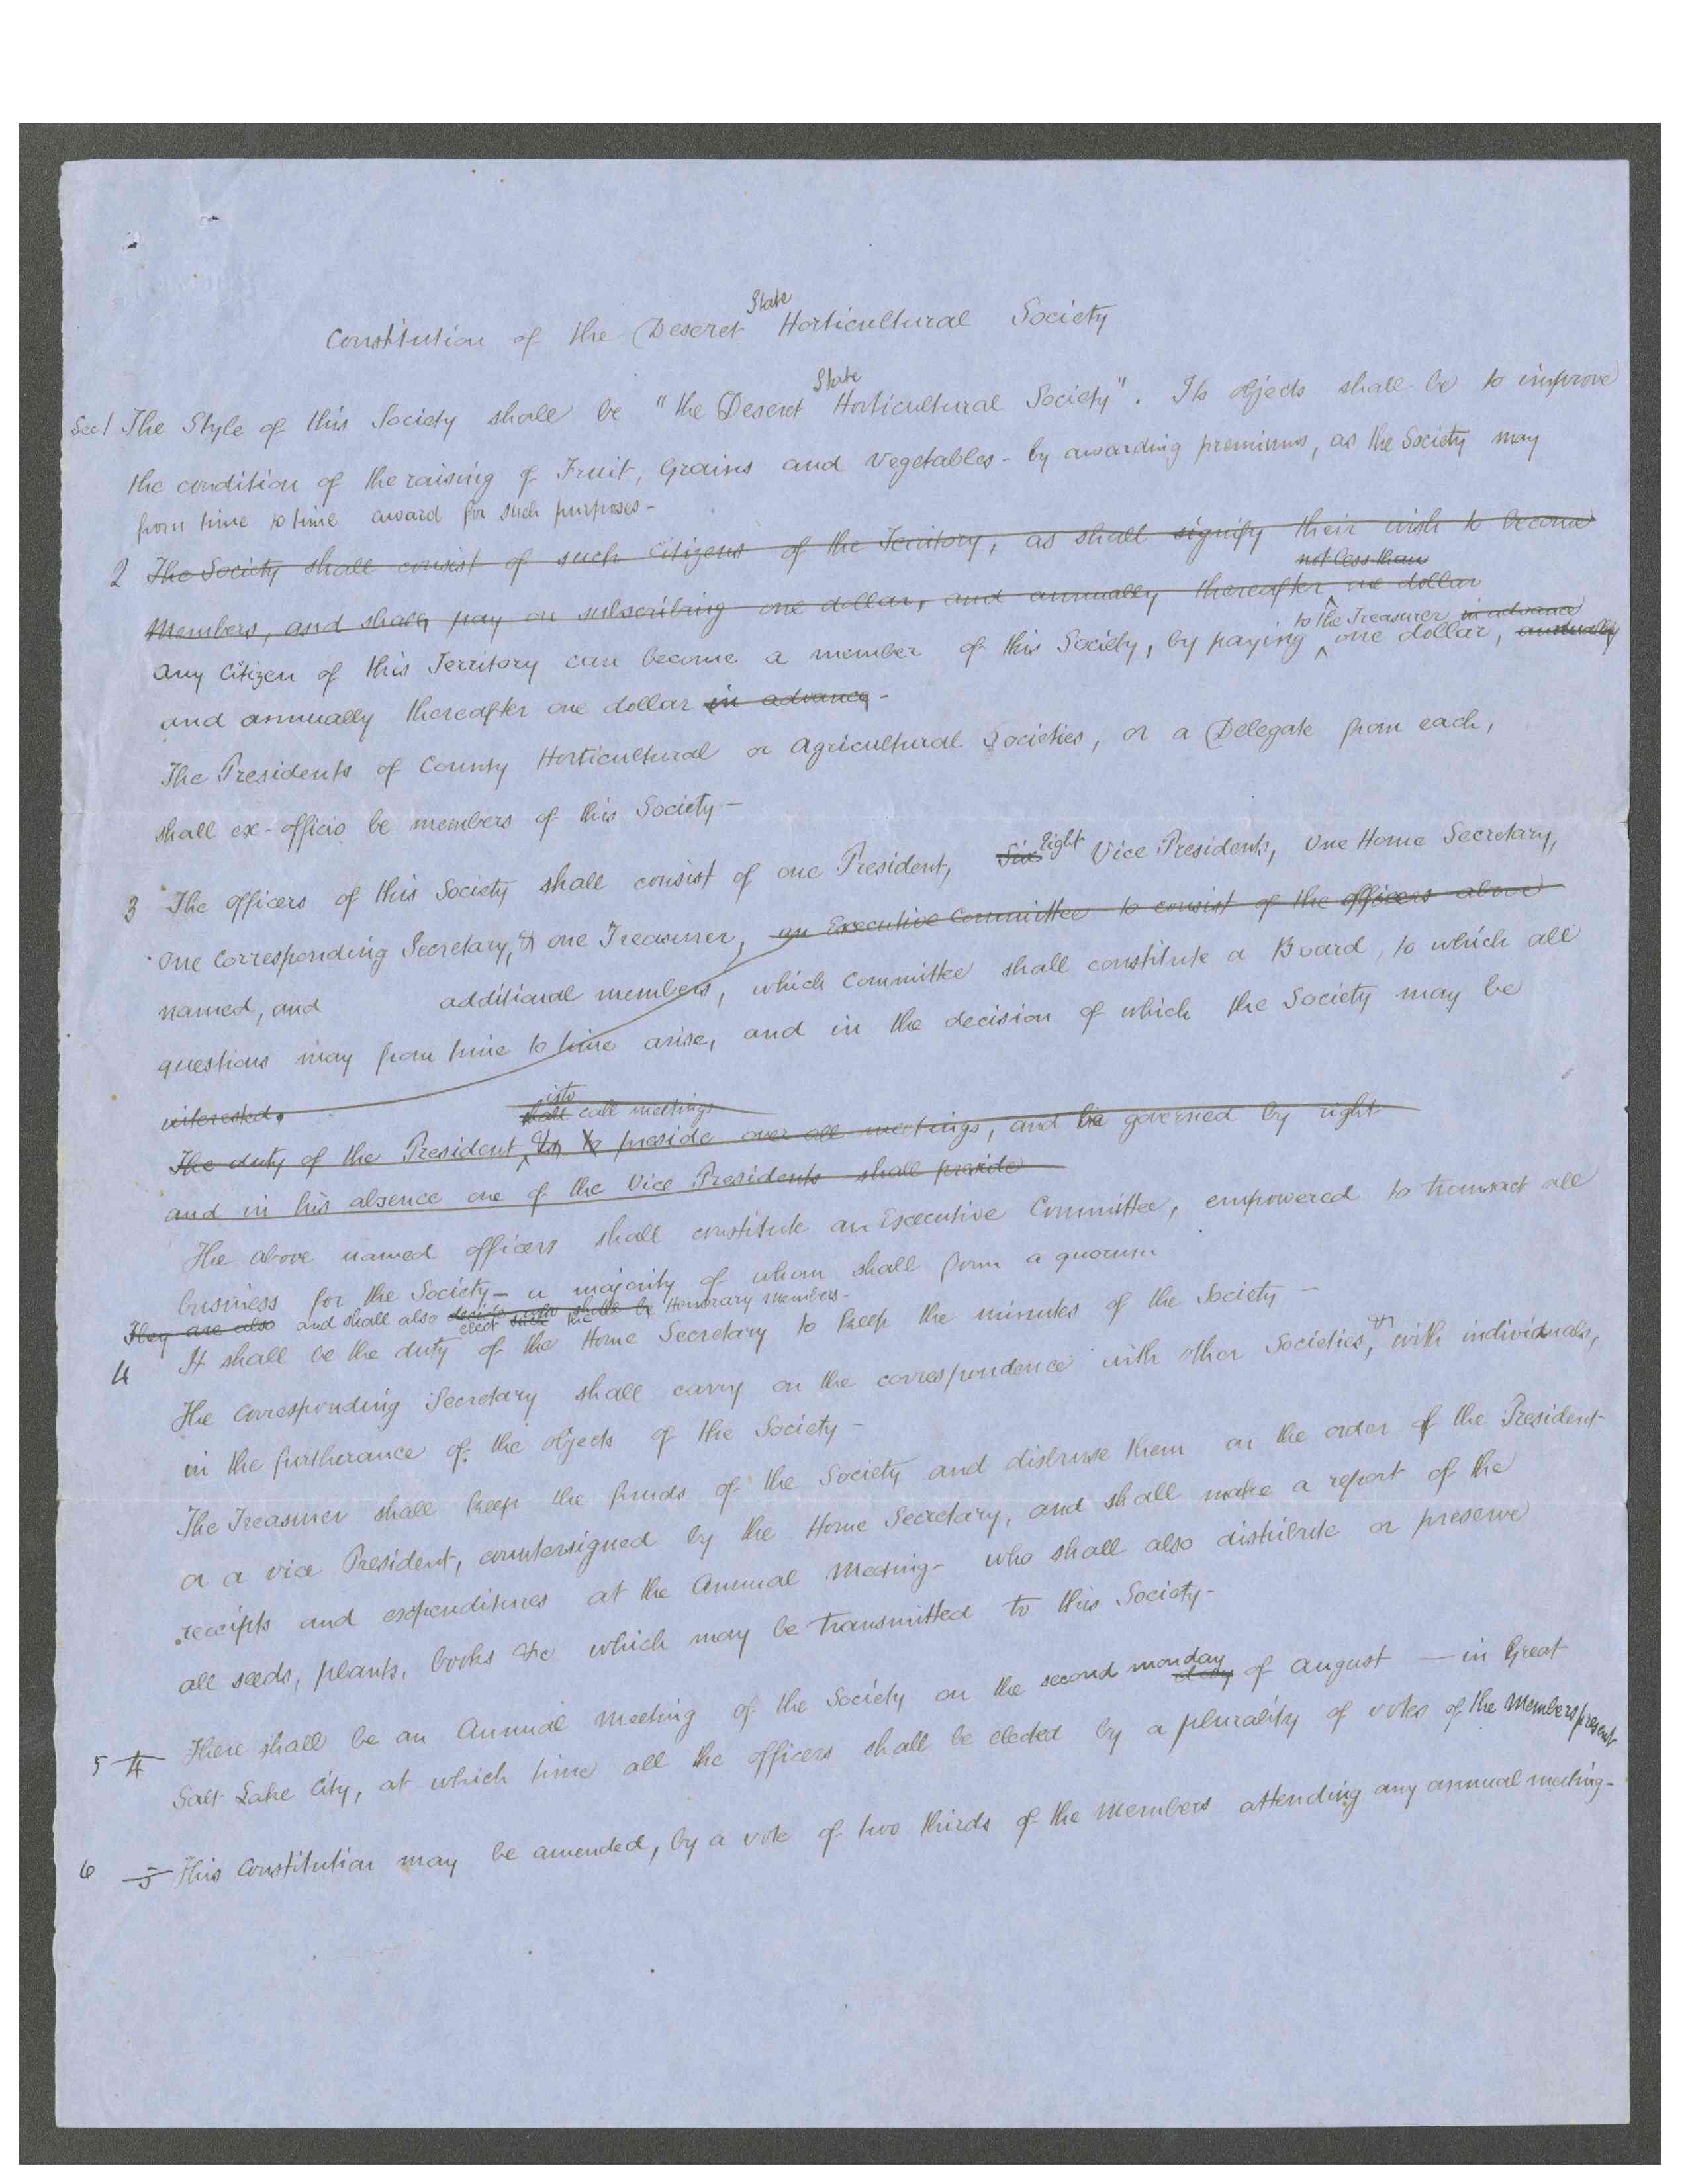 State
Constitution of the Deseret Horticultural Society
State
Sec 1 The Style of this Society shall be "the Deseret Horticultural Society". Its objects shall be to improve
the condition of the raising of Fruit, Grains and Vegetables - by awarding premiums, as the Society may
from time to time award for such purposes -
2 The Society shall consist of such citizens of the Territory, as shall signify their wish to become
not less than
Members, and shall pay on subscribing one dollar, and annually thereafter one dollar
to the Treasurer in advance
any Citizen of this Territory can become a member of this Society, by paying one dollar, annually
and annually thereafter one dollar in advance -
The Presidents of County Horticultural or Agricultural Societies, or a Delegate from each,
shall ex-officio be members of this Society -
3 The officers of this Society shall consist of one President, Six Eight Vice Presidents, One Home Secretary,
One Corresponding Secretary, & one Treasurer, an Executive Committee to consist of the officers above
named, and additional members, which Committee shall constitute a Board, to which all
questions may from time to time arise, and in the decision of which the Society may be
interested.
is to
shall call meetings
The duty of the President, & to preside over all meetings, and be governed by right
and in his absence one of the Vice Presidents shall preside
The above named officers shall constitute an Executive Committee, empowered to transact all
business for the Society - a majority of whom shall form a quorum
They are also and shall also decide who shall be Honorary Members -
elect
4 It shall be the duty of the Home Secretary to keep the minutes of the Society -
The Corresponding Secretary shall carry on the correspondence with other Societies, & with individuals,
in the furtherance of the objects of the Society -
The Treasurer shall keep the funds of the Society and disburse them on the order of the President
or a vice President, countersigned by the Home Secretary, and shall make a report of the
receipts and expenditures at the Annual Meeting - who shall also distribute or preserve
all seeds, plants, books &c which may be transmitted to this Society -
5 4 There shall be an Annual Meeting of the Society on the second monday day of August — in Great
Salt Lake City, at which time all the officers shall be elected by a plurality of votes of the Members present
6 5 This Constitution may be amended, by a vote of two thirds of the Members attending any annual meeting -